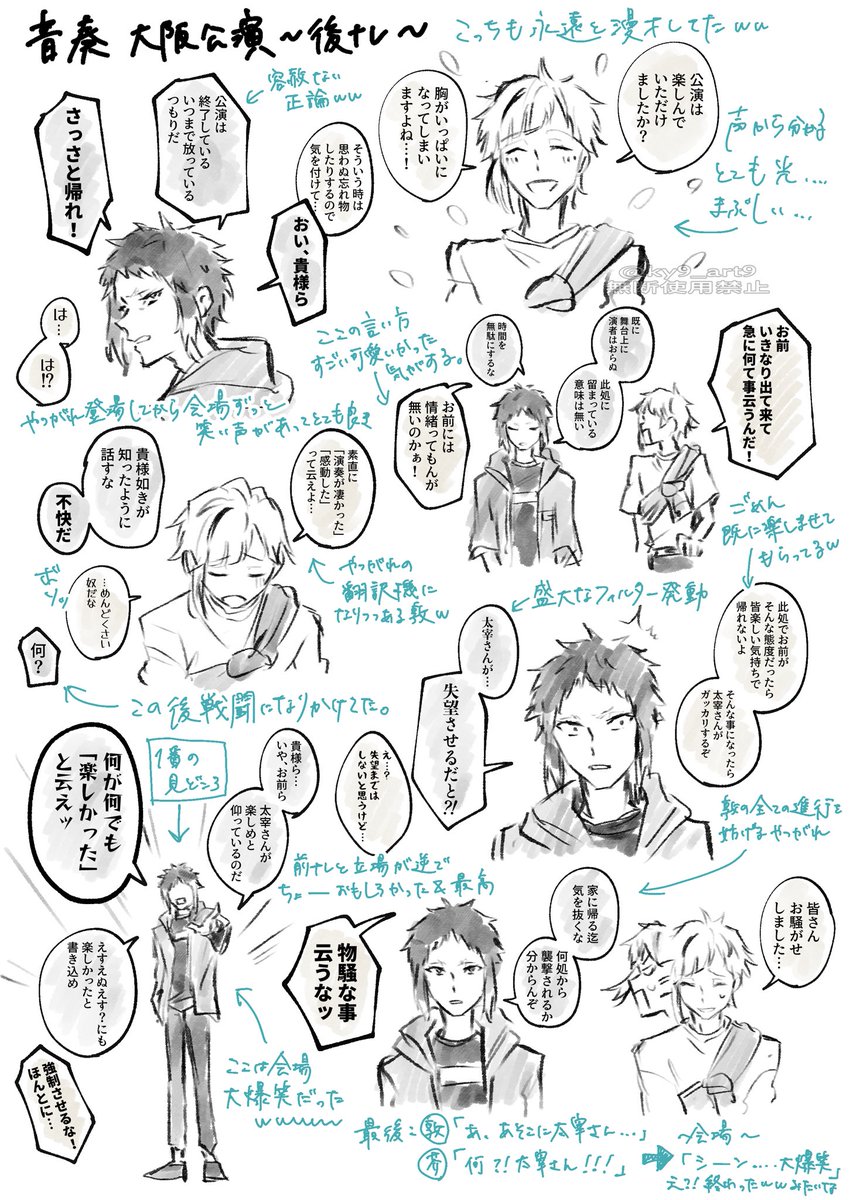 音奏 大阪公演〜後ナレ〜
こっちも永遠と漫才してたww
公演は
楽しんで
いただけ
ましたか?
胸がいっぱいに
なってしまい
ますよね…!
声から分かる
とても光....
まぶしい...
そういう時は
思わぬ忘れ物
したりするので
気を付けて…
おい、貴様ら
容赦ない
正論ww
公演は
終了している
いつまで放っている
つもりだ
さっさと帰れ!
は…
は!?
@ky9_art9
無断使用禁止
やつがれ登場してから会場ずっと
笑い声があってとても良き
既に
舞台上に
演者はおらぬ
此処に
留まっている
意味は無い
時間を
無駄にするな
お前
いきなり出て来て
急に何て事云うんだ!
お前には
情緒ってもんが
無いのかぁ!
ここの言い方
すごい可愛いかった
気がする。
素直に
「演奏が凄かった」
「感動した」
って云えよ…
貴様如きが
知ったように
話すな
不快だ
…めんどくさい
奴だな
ボソッ
何?
やつがれの
翻訳機に
なりつつある敦w
この後戦闘になりかけてた。
ごめん
既に楽しませて
もらってるw
此処でお前が
そんな態度だったら
皆楽しい気持ちで
帰れないよ
そんな事になったら
太宰さんが
ガッカリするぞ
盛大なフィルター発動
太宰さんが…
失望させるだと?!
え…?
失望までは
しないと思うけど…
貴様ら…
いや、お前ら
太宰さんが
楽しめと
仰っているのだ
1番の
見どころ
何が何でも
「楽しかった」
と云えッ
えすえぬえす?にも
楽しかったと
書き込め
強制させるな!
ほんとに…
ここは会場
大爆笑だった
wwwww
前ナレと立場が逆で
ちょーおもしろかった&最高
敦の全ての進行を
妨げるやつがれ
皆さん
お騒がせ
しました…
家に帰る迄
気を抜くな
何処から
襲撃されるか
分からんぞ
物騒な事
云うなッ
最後:敦「あ、あそこに太宰さん...」
芥「何?!太宰さん!!!」
〜会場〜
「シーン....大爆笑」
え?!終わったwwみたいな